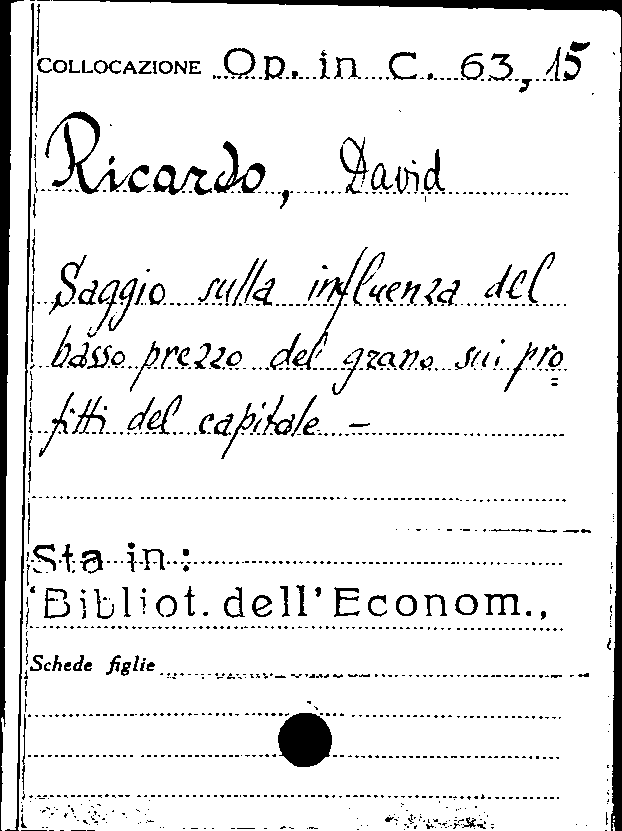 COLLOCAZIONE Op. in C. 63, 15
Ricardo, David
Saggio sulla influenza del
basso prezzo del grano sui pro=
fitti del capitale –
Sta in:
Bibliot. dell'Econom.,
Schede figlie